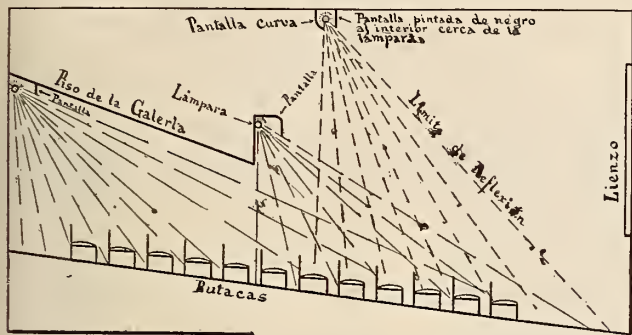 Pantalla curva
Pantalla pintada de negro
al interior cerca de la
lámpara
Piso de la Galería
Pantalla
Lámpara
Pantalla
Limite de Reflexión
Lienzo
Butacas